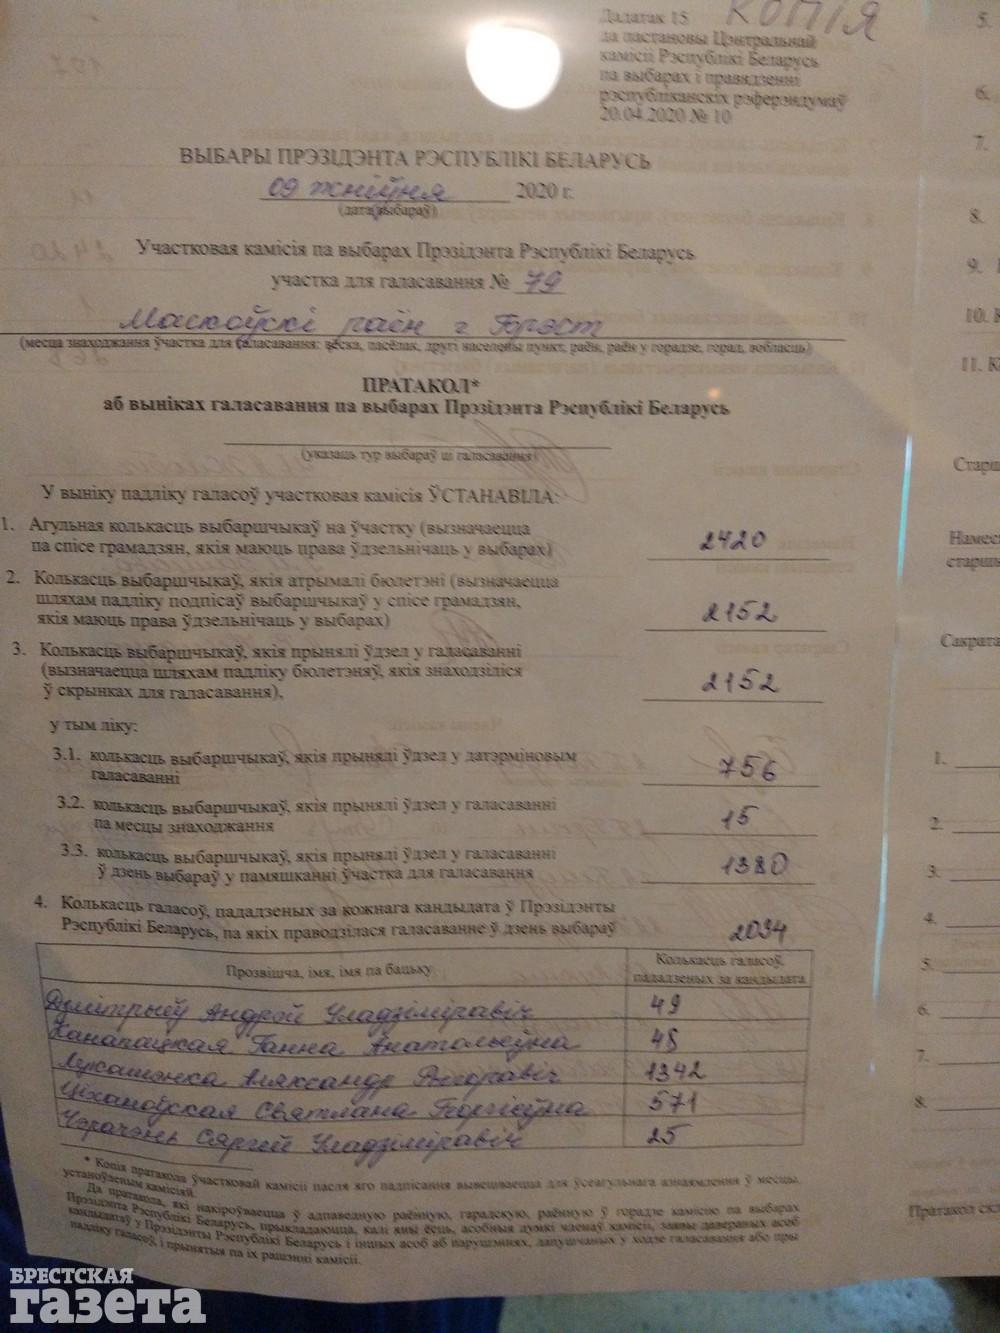 Дадатак 15 КОПІЯ
да пастановы Цэнтральнай
камісіі Рэспублікі Беларусь
па выбарах і правядзенні
рэспубліканскіх рэферэндумаў
20.04.2020 № 10
ВЫБАРЫ ПРЭЗІДЭНТА РЭСПУБЛІКІ БЕЛАРУСЬ
09 жніўня 2020 г.
(дата выбараў)
Участковая камісія па выбарах Прэзідэнта Рэспублікі Беларусь
участка для галасавання № 79
Маскоўскі раён г Брэст
(месца знаходжання ўчастка для галасавання: вёска, пасёлак, другі населены пункт, раён, раён у горадзе, горад, вобласць)
ПРАТАКОЛ*
аб выніках галасавання па выбарах Прэзідэнта Рэспублікі Беларусь
(указаць тур выбараў ці галасавання)
У выніку падліку галасоў участковая камісія ЎСТАНАВІЛА:
1. Агульная колькасць выбаршчыкаў на ўчастку (вызначаецца
па спісе грамадзян, якія маюць права ўдзельнічаць у выбарах) 2420
2. Колькасць выбаршчыкаў, якія атрымалі бюлетэні (вызначаецца
шляхам падліку подпісаў выбаршчыкаў у спісе грамадзян,
якія маюць права ўдзельнічаць у выбарах) 2152
3. Колькасць выбаршчыкаў, якія прынялі ўдзел у галасаванні
(вызначаецца шляхам падліку бюлетэняў, якія знаходзіліся
ў скрынках для галасавання), 2152
у тым ліку:
3.1. колькасць выбаршчыкаў, якія прынялі ўдзел у датэрміновым
галасаванні 756
3.2. колькасць выбаршчыкаў, якія прынялі ўдзел у галасаванні
па месцы знаходжання 15
3.3. колькасць выбаршчыкаў, якія прынялі ўдзел у галасаванні
ў дзень выбараў у памяшканні ўчастка для галасавання 1380
4. Колькасць галасоў, пададзеных за кожнага кандыдата ў Прэзідэнты
Рэспублікі Беларусь, па якіх праводзілася галасаванне ў дзень выбараў 2034
Прозвішча, імя, імя па бацьку Колькасць галасоў,
пададзеных за кандыдата
Дмітрыеў Андрэй Уладзіміравіч 49
Канапацкая Ганна Анатольеўна 48
Лукашэнка Аляксандр Рыгоравіч 1342
Ціханоўская Святлана Георгіеўна 571
Чэрачэнь Сяргей Уладзіміравіч 25
* Копія пратакола ўчастковай камісіі пасля яго падпісання вывешваецца для ўсеагульнага азнаямлення ў месцы,
устаноўленым камісіяй.
Да пратакола, які накіроўваецца ў адпаведную раённую, гарадскую, раённую ў горадзе камісію па выбарах
Прэзідэнта Рэспублікі Беларусь, прыкладаюцца, калі яны ёсць, асобныя думкі членаў камісіі, заявы давераных асоб
кандыдатаў у Прэзідэнты Рэспублікі Беларусь і іншых асоб аб парушэннях, дапушчаных у ходзе галасавання або пры
падліку галасоў, і прынятыя па іх рашэнні камісіі.
5.
6.
7.
8.
9.
10.
11.
Старш
Намес
старшы
Сакрата
1.
2.
3.
4.
5.
6.
7.
8.
Пратакол скл
БРЕСТСКАЯ
газета